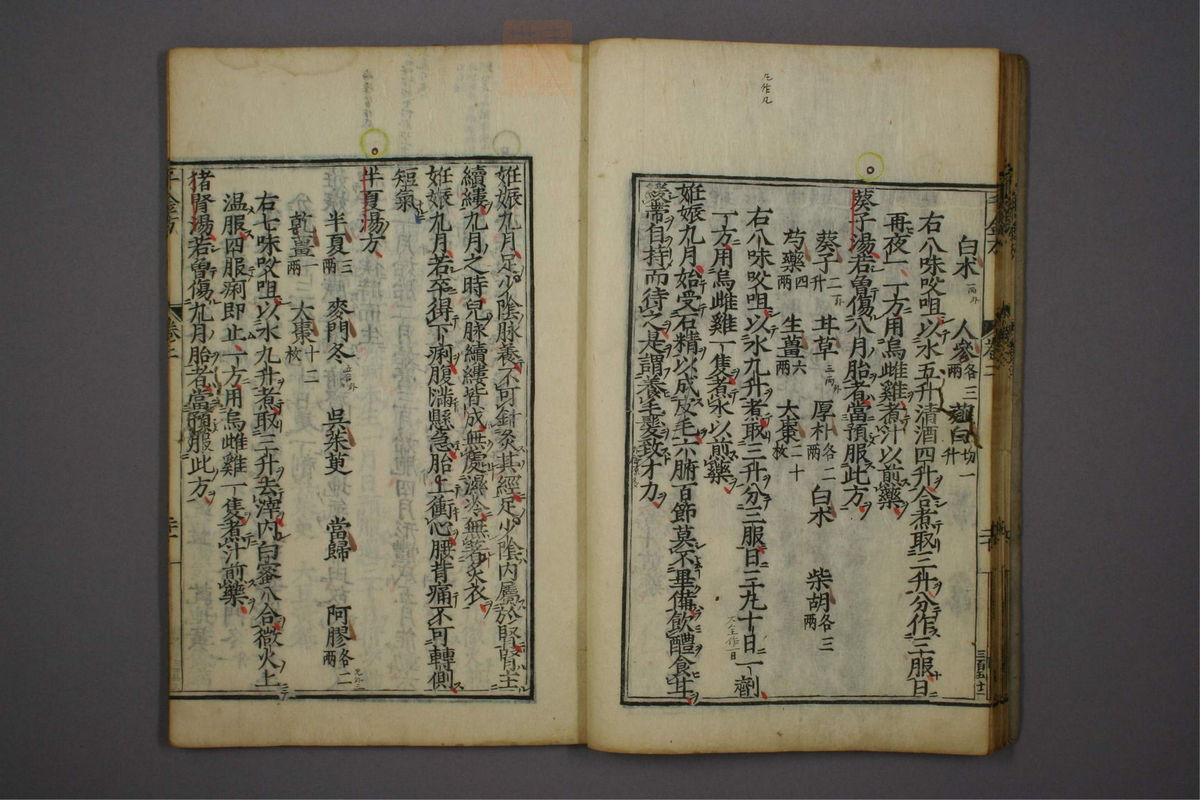 白朮 人參各三兩 薤白切一升
右八味㕮咀以水五升清酒四升合煮取三升分作三服日
再夜一一方用烏雌雞煮汁以煎藥
葵子湯若曾傷八月胎者當預服此方
葵子二升 甘草 厚朴各二兩 白朮 柴胡各三兩
芍藥四兩 生薑六兩 大棗二十枚
右八味㕮咀以水九升煮取三升分三服日三凡十日一劑
一方用烏雌雞一隻煮水以煎藥
妊娠九月始受石精以成皮毛六腑百節莫不畢備飲醴食甘
緩帶自持而待之是謂養毛髮致才力
妊娠九月足少陰脉養不可針灸其經足少陰内屬於腎腎主
續縷九月之時兒脉續縷皆成無處濕冷無著炙衣
妊娠九月若卒得下痢腹滿懸急胎上衝心腰背痛不可轉側
短氣
半夏湯方
半夏三兩 麥門冬 吳茱萸 當歸 阿膠各二兩
乾薑一兩 大棗十二枚
右七味㕮咀以水九升煮取三升去滓内白蜜八合微火上
温服四服痢即止一方用烏雌雞一隻煮汁煎藥
猪腎湯若曾傷九月胎者當預服此方
千金方 卷二